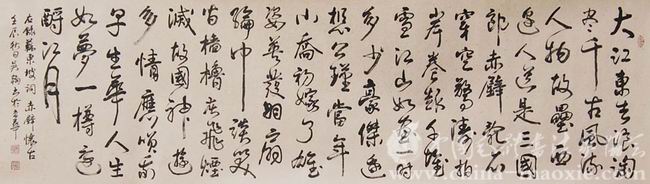 大江東去浪淘
盡千古風流
人物故壘西
邊人道是三國
郎赤壁亂石
穿空驚濤拍
岸卷起千堆
雪江山如畫一時
多少豪傑遙
想公瑾當年
小喬初嫁了雄
姿英發羽扇
綸巾談笑
間檣櫓灰飛煙
滅故國神遊
多情應笑我
早生華人生
如夢一樽還
酹江月
右錄蘇東坡詞赤壁懷古
壬辰秋月
china-maoxie.com